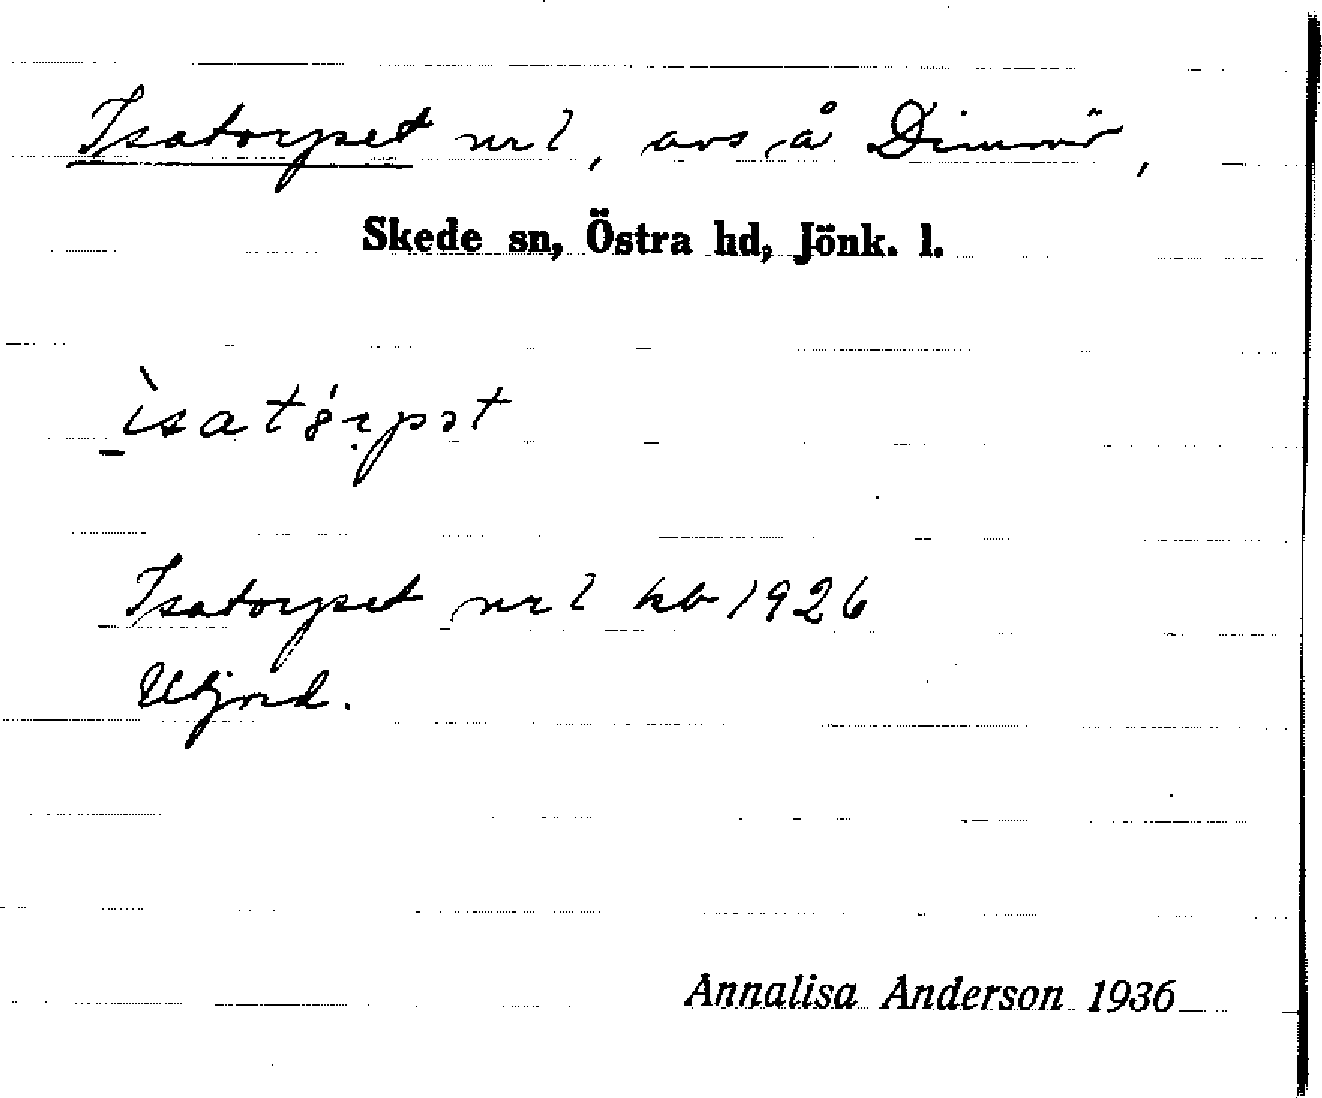 Isatorpet nr 2, avs å Dinnör,
Skede sn, Östra hd, Jönk. l.
ìsatǿrpət
Isatorpet nr 2 kb 1926
Utjord.
Annalisa Anderson 1936